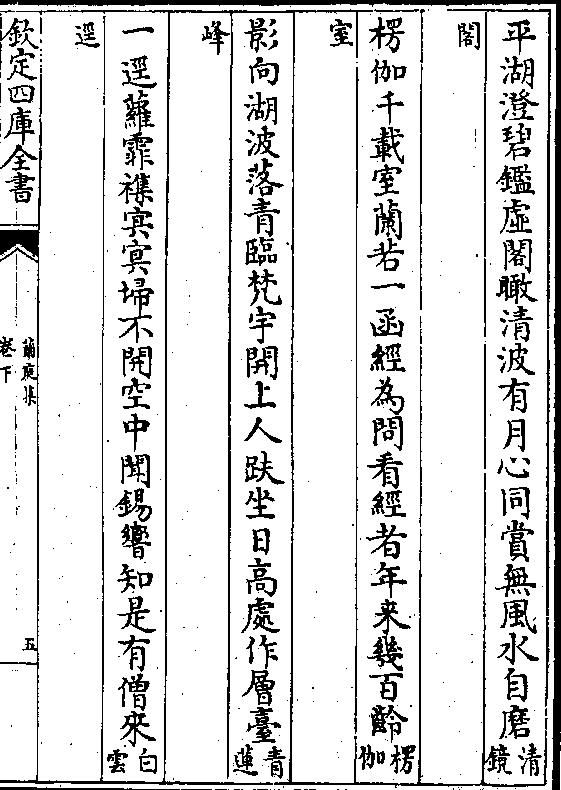 平湖澄碧鑑虛閣瞰清波有月心同賞無風水自磨清鏡
閣
楞伽千載室蘭若一函經為問看經者年来幾百齡楞伽
室
影向湖波落青臨梵宇開上人趺坐日高處作層臺青蓮
峰
一逕蘿霏襍㝠㝠埽不開空中聞錫響知是有僧來白雲
逕
欽定四庫全書
蘭庭集
卷下
五